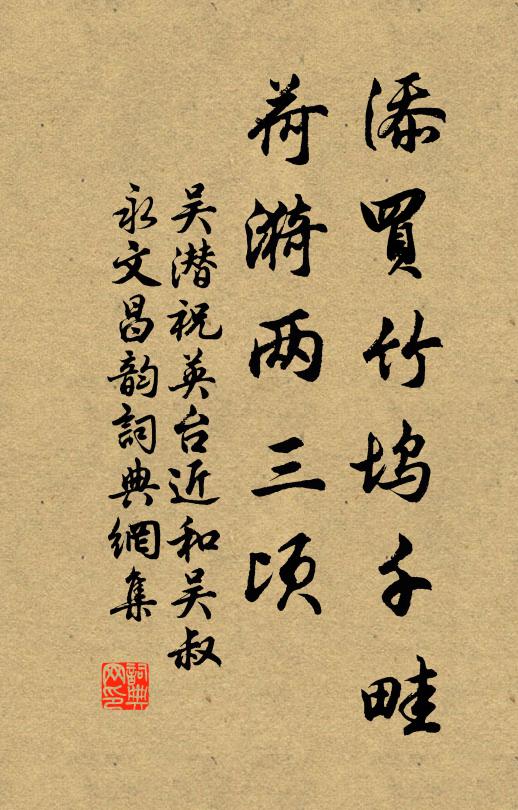 添買竹坞千畦
荷漪两三顷
吴潜祝英台近和吴叔
永文昌韵詞典網集
詞典网印